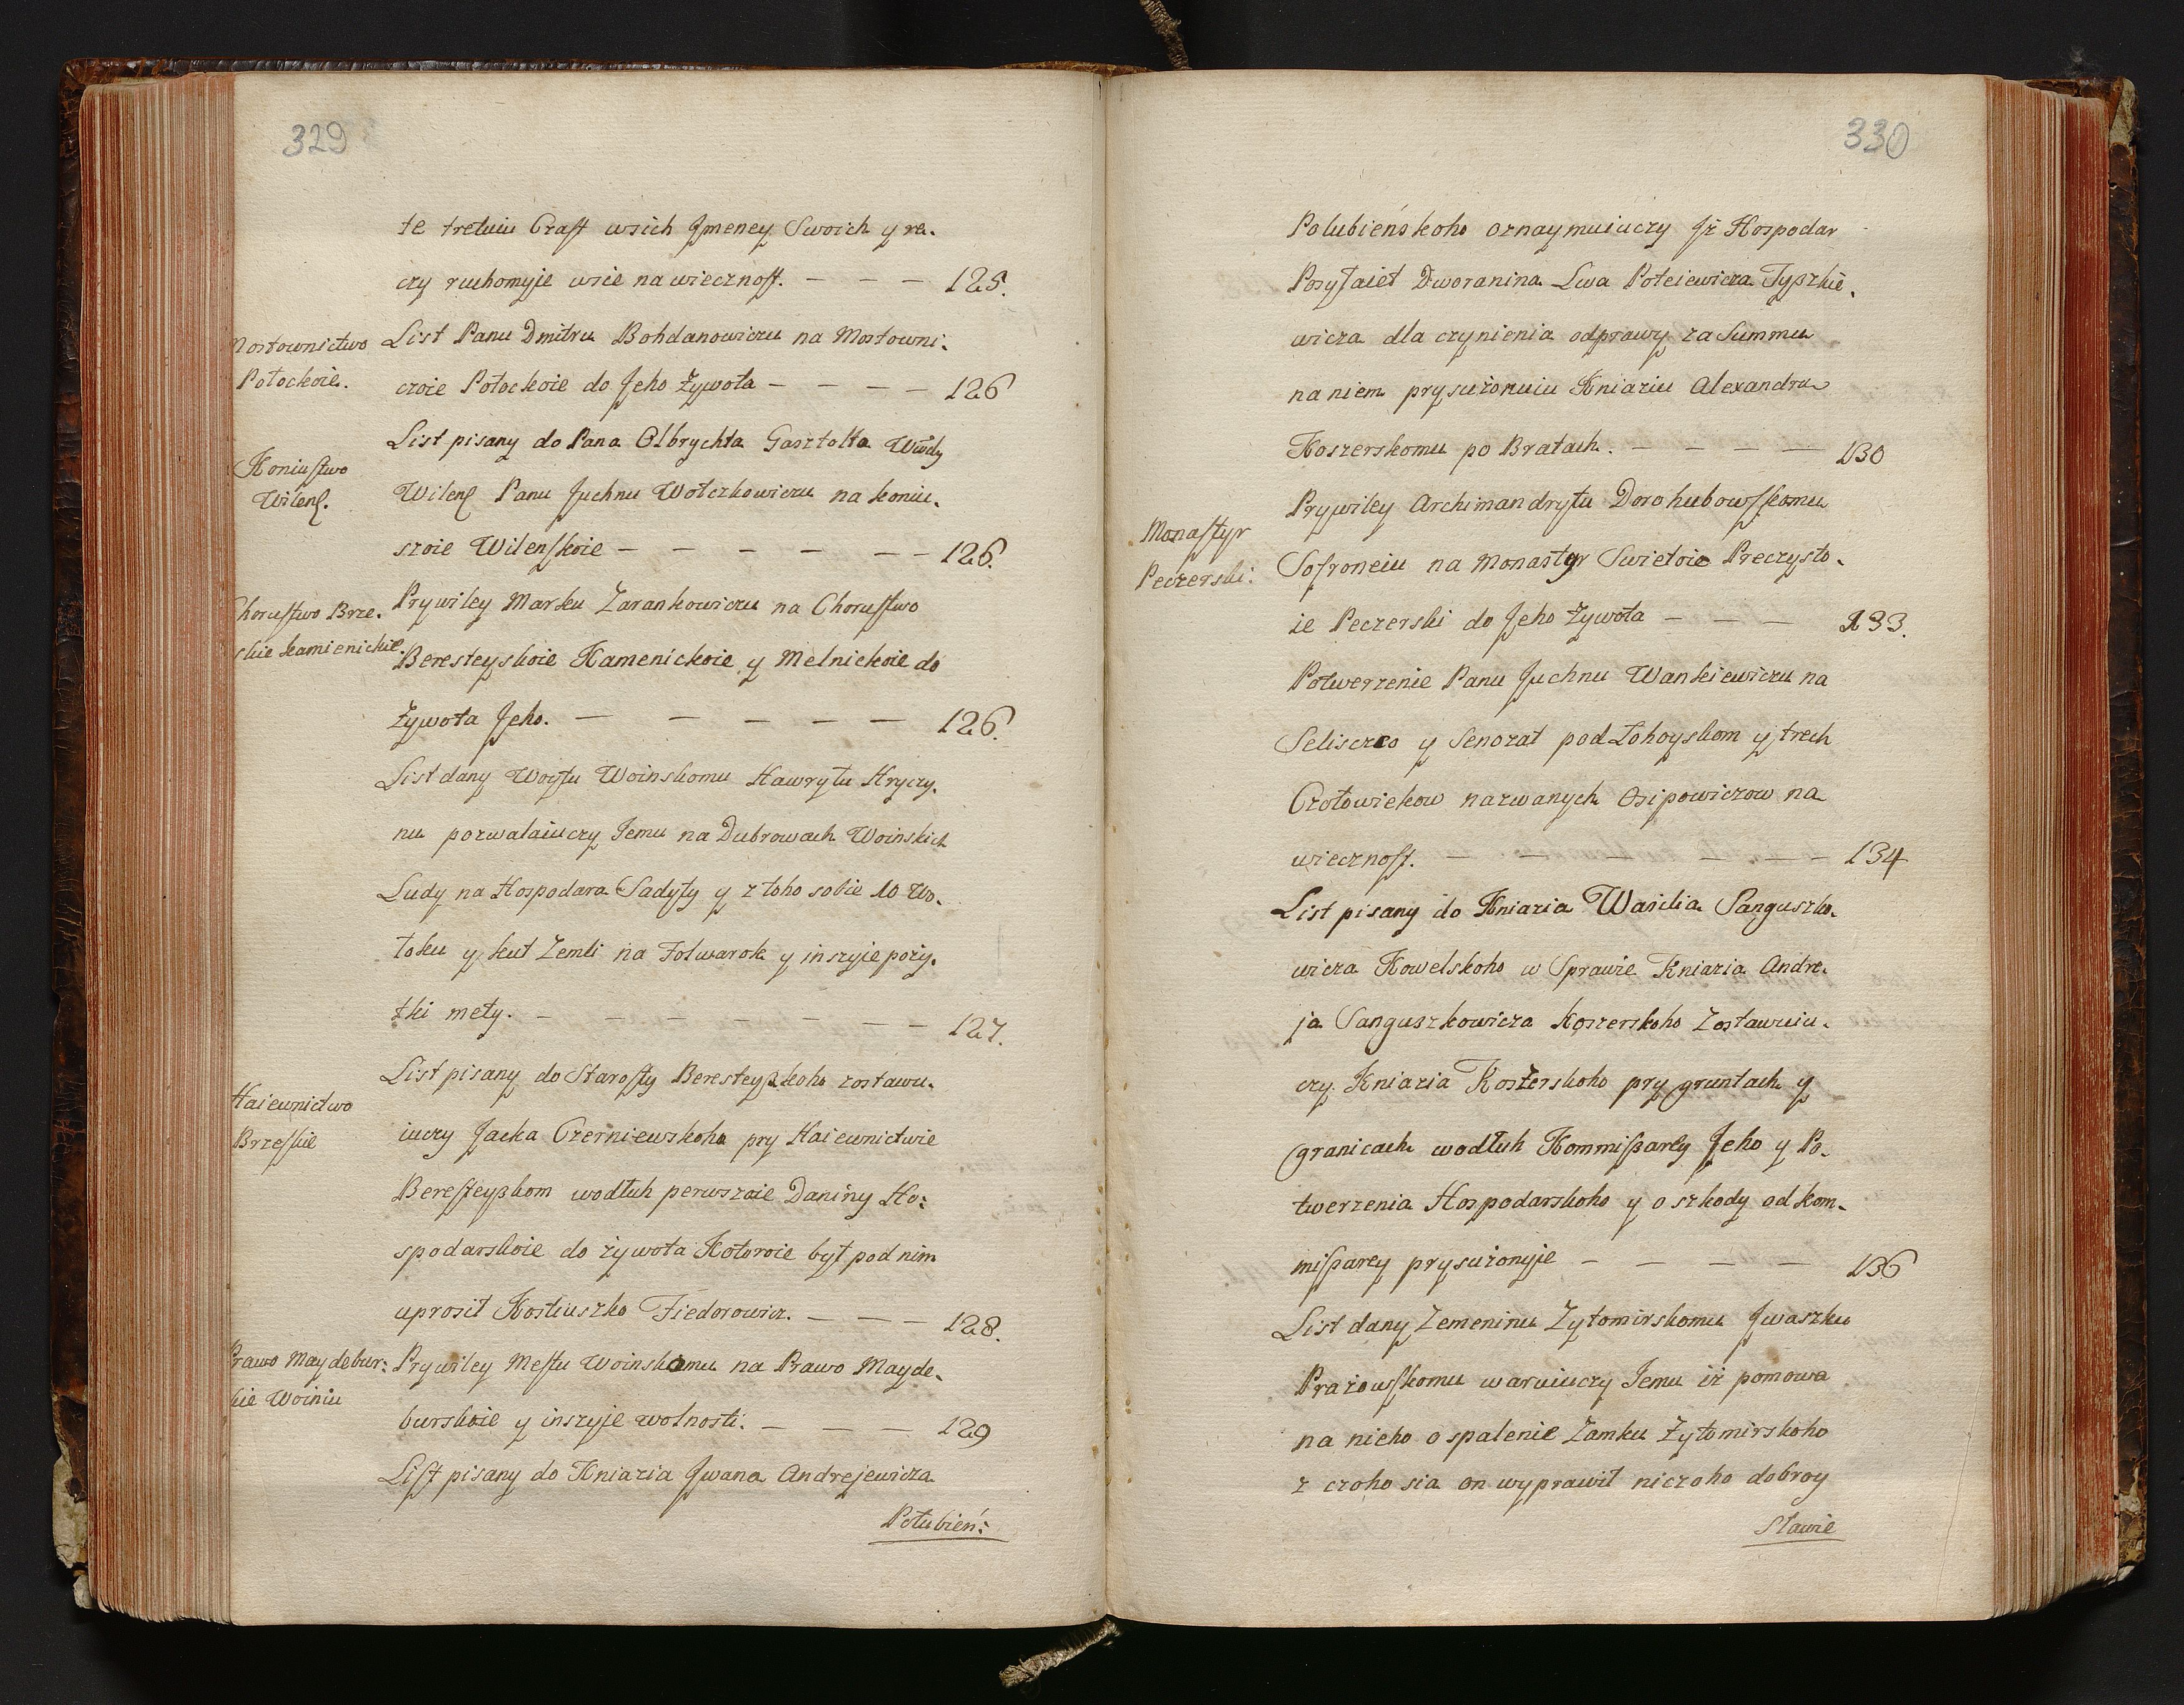 329
te tretuiu Czast wsich Jmeney Swoich y re-
czy ruchomyje wsie na wiecznost. — — — 125.
Mostownictwo
Połockoie.
List Panu Dmitru Bohdanowiczu na Mostowni-
czoie Połockoie do Jeho Żywota — — — — 126
Koniustwo
Wilens.
List pisany do Pana Olbrychta Gasztolta Wwdy
Wilens Panu Juchnu Wołczkowiczu na koniu-
szoie Wilenskoie — — — — — — 126.
Chorustwo Brze-
skie kamienickie.
Prywiley Marku Zarankowiczu na Chorustwo
Beresteyskoie Kamenickoie y Melnickoie do
Żywota Jeho. — — — — — 126.
List dany Woytu Woinskomu Hawryłu Hryczy-
nu pozwalaiuczy Jemu na Dubrowach Woinskich
Ludy na Hospodara Sadyty y z toho sobie 10 Wo-
łoku y kut Zemli na Folwarok y inszyie poży-
tki mety. — — — — — — — 127.
Haiewnictwo
Brzeskie
List pisany do Starosty Beresteyskoho zostawu-
iuczy Jacka Czerniewskoho pry Haiewnictwie
Beresteyskom wodłuh perwszoie Daniny Ho-
spodarskoie do żywota Kotoroie był pod nim
uprosił Kostiuszko Fiedorowicz. — — — 128.
Prawo Maydebur:
kie Woiniu
Prywiley Mestu Woinskomu na Prawo Mayde-
burskoie y inszyje wolnosti. — — — 129
List pisany do Kniazia Jwana Andrejewicza
Połubień:
330
Polubieńskoho oznaymuiuczy Jż Hospodar
Posyłaiet Dworanina Lwa Poteiewicza Tyszkie-
wicza dla czynienia odprawy za Summu
na niem prysużonuiu Kniaziu Alexandru
Koszerskomu po Bratach. — — — — 130
Monastyr
Peczerski.
Prywiley Archimandrytu Dorohubowskomu
Sofroneiu na Monastyr Swietoie Preczysto-
ie Peczerski do Jeho Żywota — — — 133.
Potwerzenie Panu Juchnu Wankiewiczu na
Selisczo y Senozat pod Łohoyskom y trech
Czołowiekow nazwanych Osipowiczow na
wiecznost. — — — — — — 134
List pisany do Kniazia Wasilia Sanguszko-
wicza Kowelskoho w Sprawie Kniazia Andre-
ja Sanguszkowicza Koszerskoho Zostawuiu-
czy Kniazia Koszerskoho pry gruntach y
granicach wodłuh Kommissarey Jeho y Po-
twerzenia Hospodarskoho y o szkody od kom-
missarey prysużonyje — — — — 136
List dany Zemeninu Zytomirskomu Jwaszku
Prażowskomu waruiuczy Jemu iż pomowa
na nieho o spalenie Zamku Żytomirskoho
z czoho sia on wyprawił niczoho dobroy
Sławie